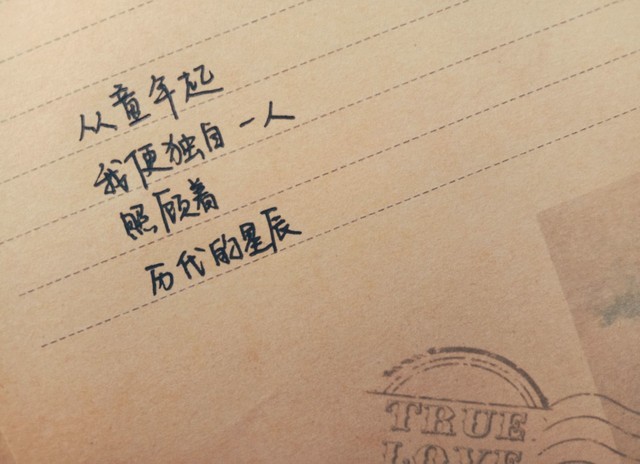 从童年起
我便独自一人
照顾着
历代的星辰
TRUE
LOVE